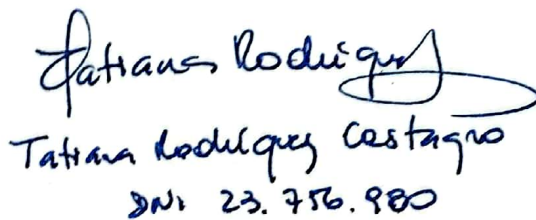 Tatiana Rodriguez
Tatiana Rodriguez Castagno
DNI 23.756.980